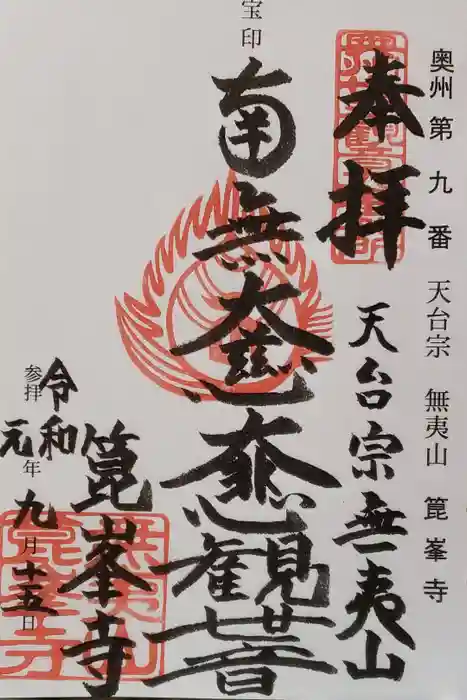 奥州第九番 天台宗 無夷山 箟峯寺
奉拝
天台宗無夷山
宝印
南無大慈大悲観世音
箟峯寺
参拝 令和元年九月十五日
無夷山
箟峯寺